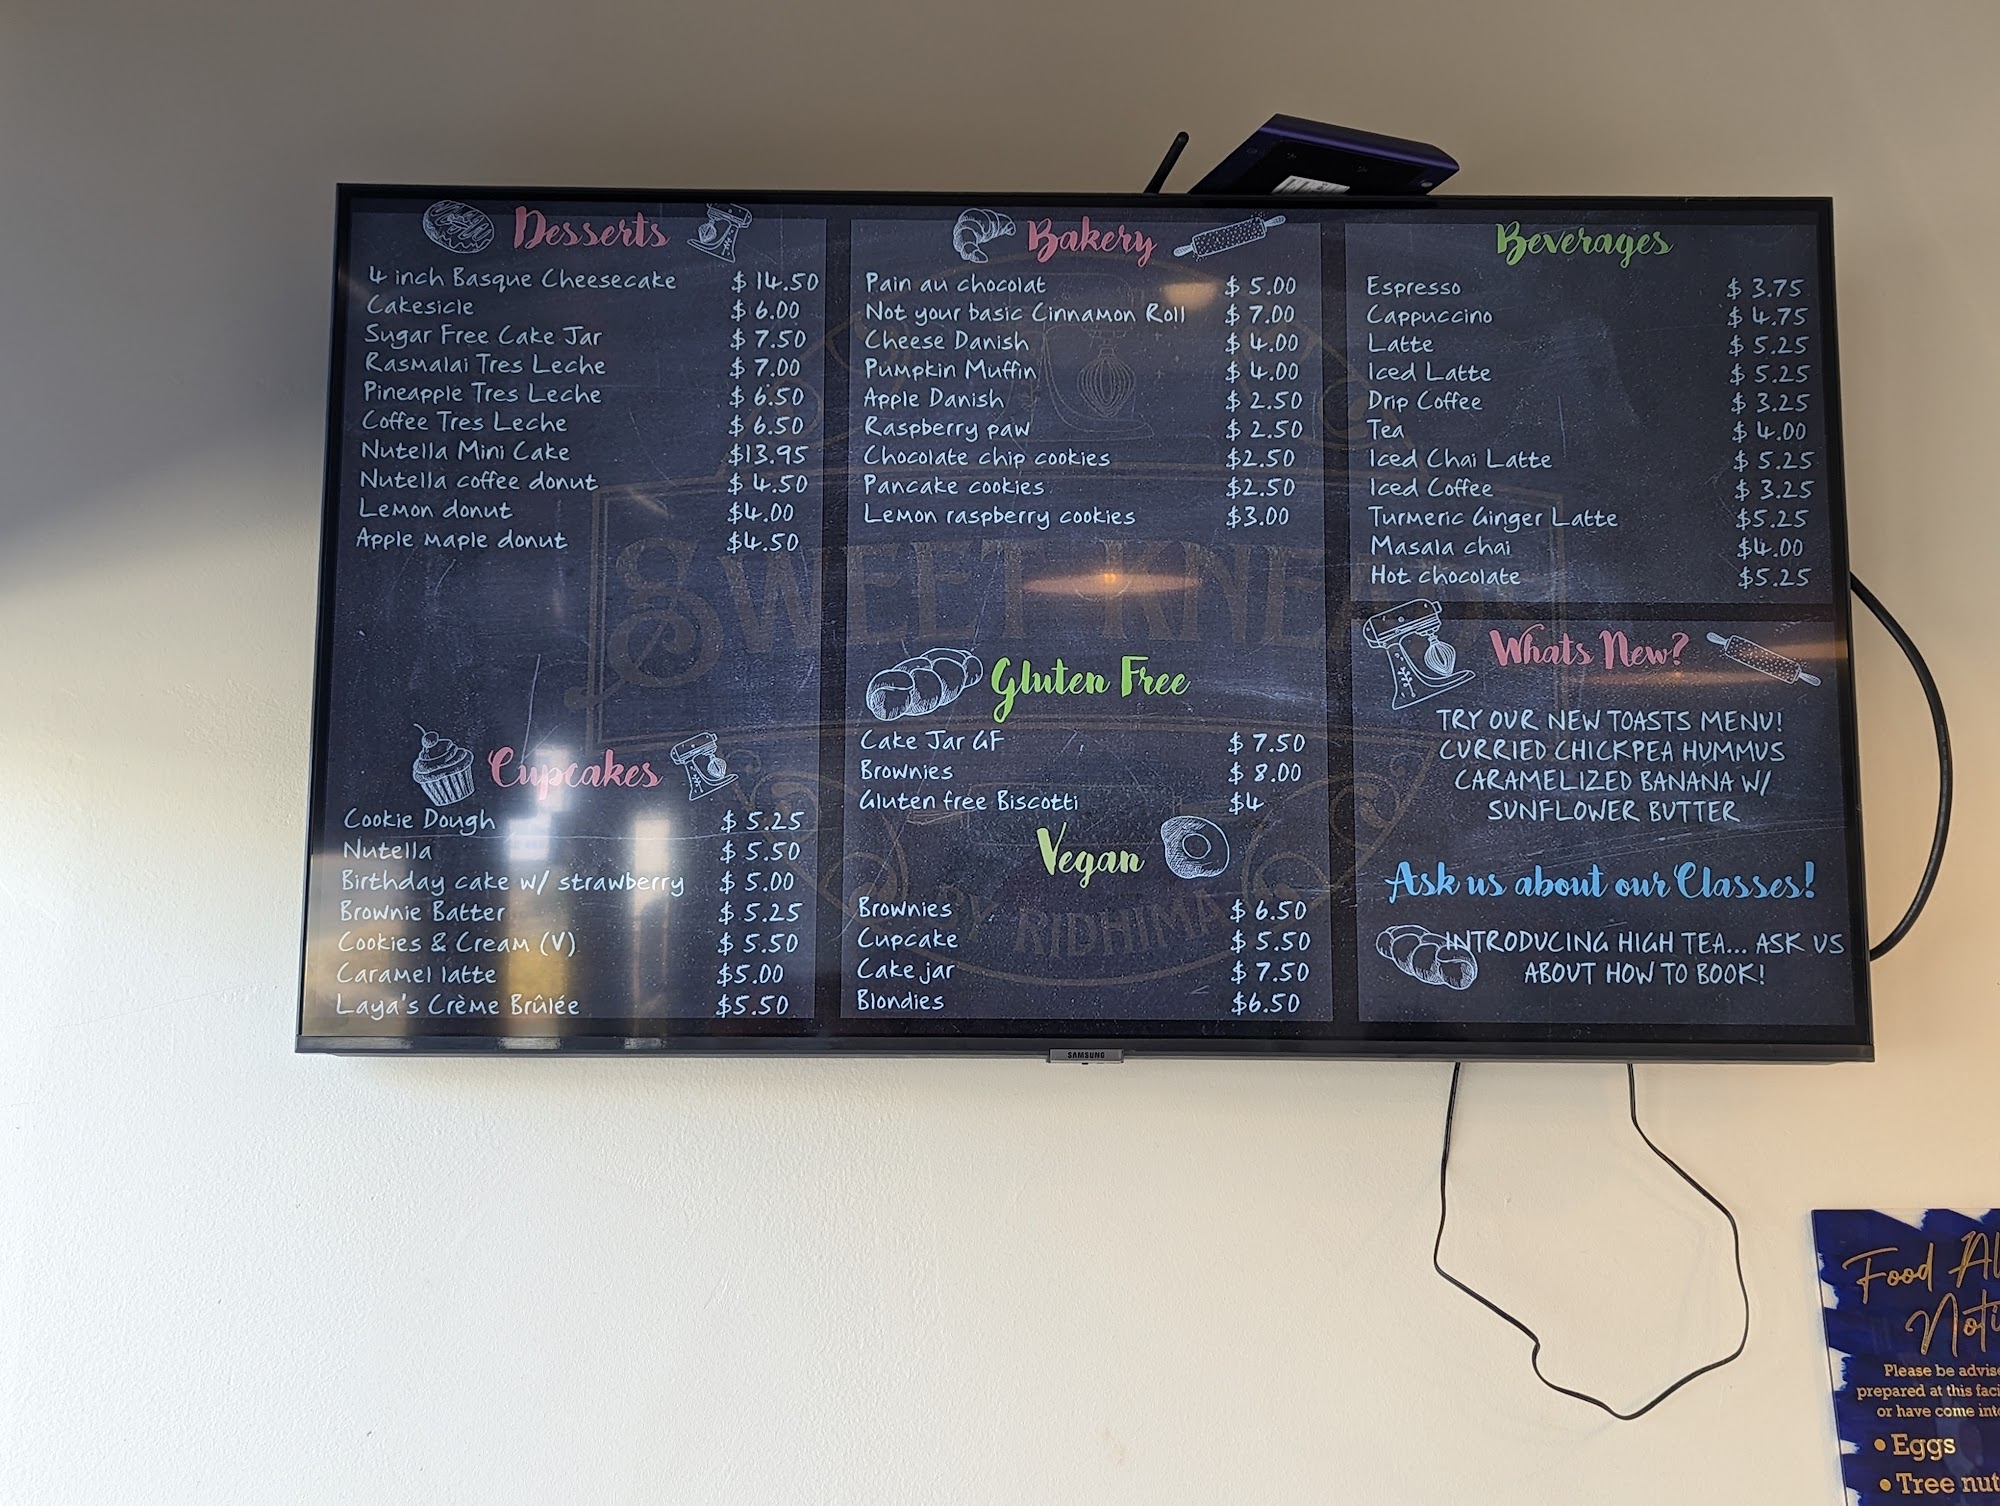 Desserts
4 inch Basque Cheesecake $ 14.50
Cakesicle $ 6.00
Sugar Free Cake Jar $ 7.50
Rasmalai Tres Leche $ 7.00
Pineapple Tres Leche $ 6.50
Coffee Tres Leche $ 6.50
Nutella Mini Cake $13.95
Nutella coffee donut $ 4.50
Lemon donut $4.00
Apple maple donut $4.50
Cupcakes
Cookie Dough $ 5.25
Nutella $ 5.50
Birthday cake w/ strawberry $ 5.00
Brownie Batter $ 5.25
Cookies & Cream (V) $ 5.50
Caramel latte $5.00
Laya's Crème Brûlée $5.50
Bakery
Pain au chocolat $ 5.00
Not your basic Cinnamon Roll $ 7.00
Cheese Danish $ 4.00
Pumpkin Muffin $ 4.00
Apple Danish $ 2.50
Raspberry paw $ 2.50
Chocolate chip cookies $2.50
Pancake cookies $2.50
Lemon raspberry cookies $3.00
Gluten Free
Cake Jar GF $ 7.50
Brownies $ 8.00
Gluten free Biscotti $4
Vegan
Brownies $ 6.50
Cupcake $ 5.50
Cake jar $ 7.50
Blondies $6.50
Beverages
Espresso $ 3.75
Cappuccino $ 4.75
Latte $ 5.25
Iced Latte $ 5.25
Drip Coffee $ 3.25
Tea $ 4.00
Iced Chai Latte $ 5.25
Iced Coffee $ 3.25
Turmeric Ginger Latte $5.25
Masala chai $4.00
Hot chocolate $5.25
Whats New?
TRY OUR NEW TOASTS MENU!
CURRIED CHICKPEA HUMMUS
CARAMELIZED BANANA W/
SUNFLOWER BUTTER
Ask us about our Classes!
INTRODUCING HIGH TEA... ASK US
ABOUT HOW TO BOOK!
SWEET KNE
BY RIDHIMA
SAMSUNG
Food
Please be
prepared at this
or have come
• Eggs
• Tree